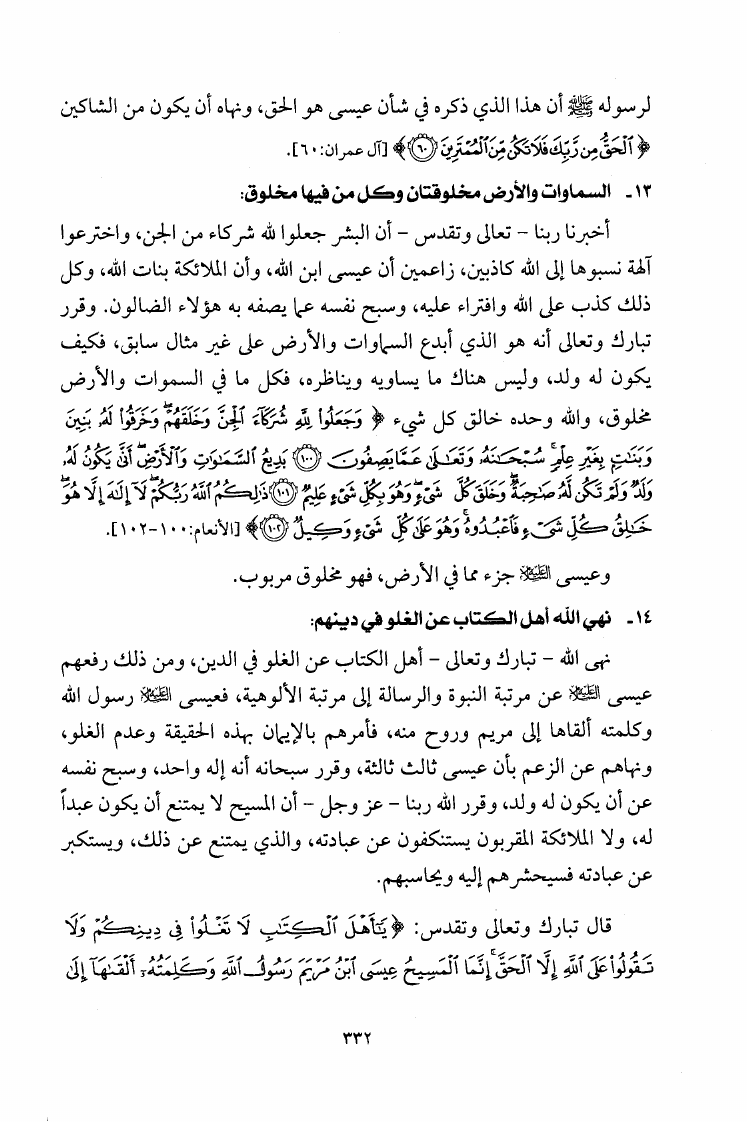 لرسوله ﷺ أن هذا الذي ذكره في شأن عيسى هو الحق، ونهاه أن يكون من الشاكين
﴿ ٱلْحَقُّ مِن رَّبِّكَ فَلَا تَكُن مِّنَ ٱلْمُمْتَرِينَ ۝٦٠ ﴾ [آل عمران:٦٠].
١٣- السماوات والأرض مخلوقتان وكل من فيها مخلوق:
أخبرنا ربنا – تعالى وتقدس – أن البشر جعلوا لله شركاء من الجن، واخترعوا
آلهة نسبوها إلى الله كاذبين، زاعمين أن عيسى ابن الله، وأن الملائكة بنات الله، وكل
ذلك كذب على الله وافتراء عليه، وسبح نفسه عما يصفه به هؤلاء الضالون. وقرر
تبارك وتعالى أنه هو الذي أبدع السماوات والأرض على غير مثال سابق، فكيف
يكون له ولد، وليس هناك ما يساويه ويناظره، فكل ما في السموات والأرض
مخلوق، والله وحده خالق كل شيء ﴿ وَجَعَلُوا۟ لِلَّهِ شُرَكَآءَ ٱلْجِنَّ وَخَلَقَهُمْ ۖ وَخَرَقُوا۟ لَهُۥ بَنِينَ
وَبَنَـٰتٍۭ بِغَيْرِ عِلْمٍ ۚ سُبْحَـٰنَهُۥ وَتَعَـٰلَىٰ عَمَّا يَصِفُونَ ۝١٠٠ بَدِيعُ ٱلسَّمَـٰوَٰتِ وَٱلْأَرْضِ ۖ أَنَّىٰ يَكُونُ لَهُۥ
وَلَدٌ وَلَمْ تَكُن لَّهُۥ صَـٰحِبَةٌ ۖ وَخَلَقَ كُلَّ شَىْءٍ ۖ وَهُوَ بِكُلِّ شَىْءٍ عَلِيمٌ ۝١٠١ ذَٰلِكُمُ ٱللَّهُ رَبُّكُمْ ۖ لَآ إِلَـٰهَ إِلَّا هُوَ ۖ
خَـٰلِقُ كُلِّ شَىْءٍ فَٱعْبُدُوهُ ۚ وَهُوَ عَلَىٰ كُلِّ شَىْءٍ وَكِيلٌ ۝١٠٢ ﴾ [الأنعام:١٠٠-١٠٢].
وعيسى عليه السلام جزء مما في الأرض، فهو مخلوق مربوب.
١٤- نهي الله أهل الكتاب عن الغلو في دينهم:
نهى الله – تبارك وتعالى – أهل الكتاب عن الغلو في الدين، ومن ذلك رفعهم
عيسى عليه السلام عن مرتبة النبوة والرسالة إلى مرتبة الألوهية، فعيسى عليه السلام رسول الله
وكلمته ألقاها إلى مريم وروح منه، فأمرهم بالإيمان بهذه الحقيقة وعدم الغلو،
ونهاهم عن الزعم بأن عيسى ثالث ثالثة، وقرر سبحانه أنه إله واحد، وسبح نفسه
عن أن يكون له ولد، وقرر الله ربنا – عز وجل – أن المسيح لا يمتنع أن يكون عبداً
له، ولا الملائكة المقربون يستنكفون عن عبادته، والذي يمتنع عن ذلك، ويستكبر
عن عبادته فسيحشرهم إليه ويحاسبهم.
قال تبارك وتعالى وتقدس: ﴿ يَـٰٓأَهْلَ ٱلْكِتَـٰبِ لَا تَغْلُوا۟ فِى دِينِكُمْ وَلَا
تَقُولُوا۟ عَلَى ٱللَّهِ إِلَّا ٱلْحَقَّ ۚ إِنَّمَا ٱلْمَسِيحُ عِيسَى ٱبْنُ مَرْيَمَ رَسُولُ ٱللَّهِ وَكَلِمَتُهُۥٓ أَلْقَىٰهَآ إِلَىٰ
٣٣٢